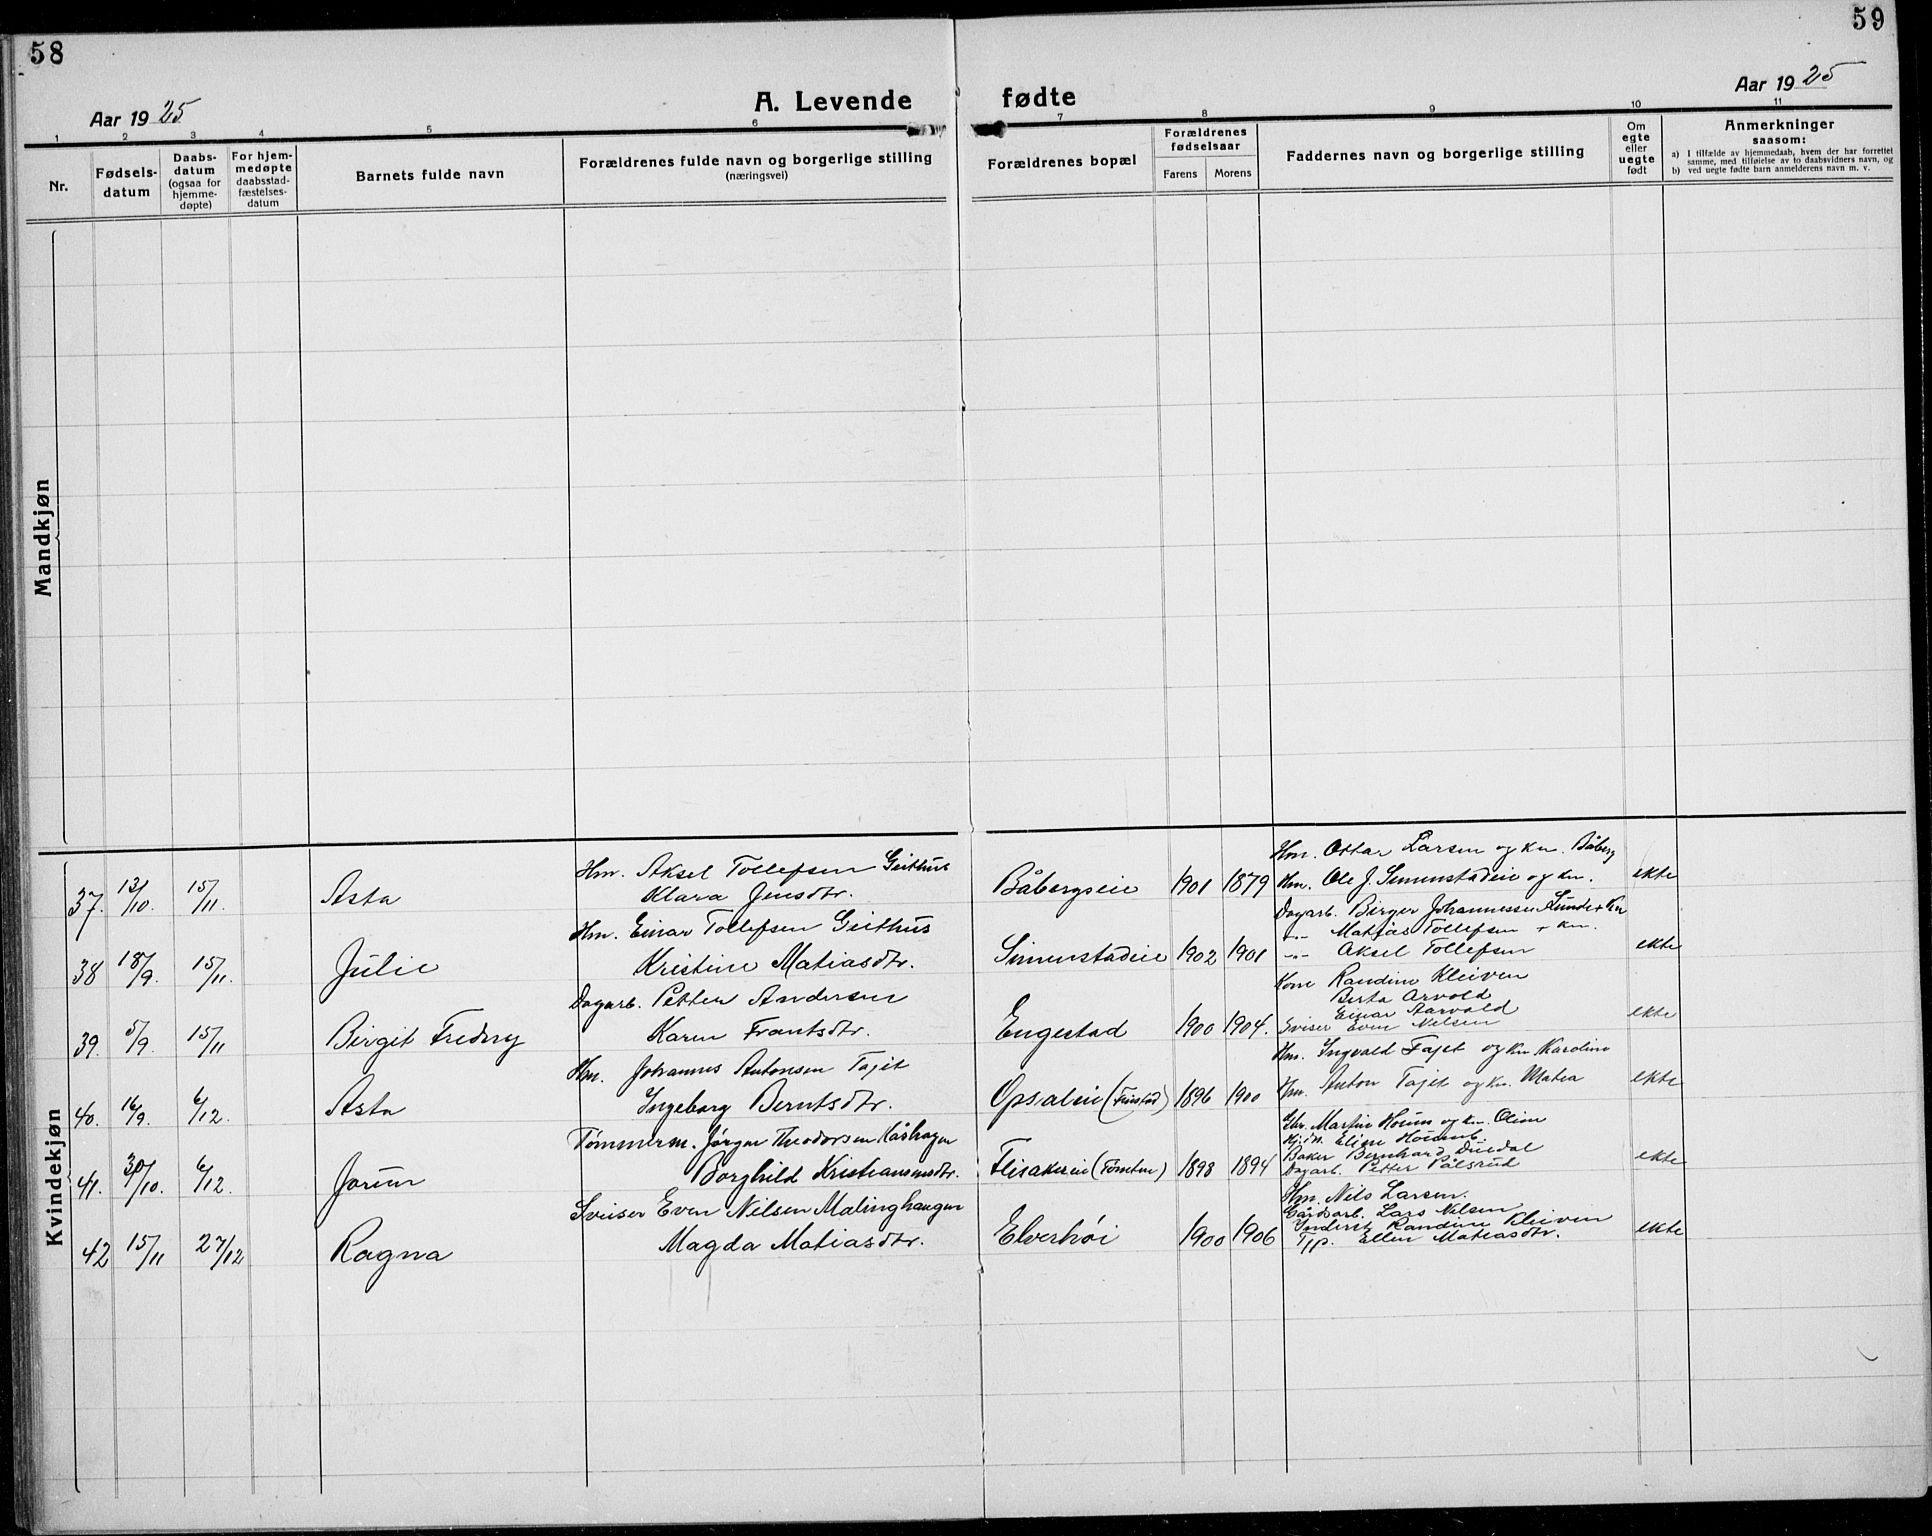 58
59
Aar 1925
A. Levende fødte
Aar 1925
1 2 3 4 5 6 7 8 9 10 11
Nr.
Fødsels-
datum
Daabs-
datum
(ogsaa for
hjemme-
døpte)
For hjem-
medøpte
daabsstad-
fæstelses-
datum
Barnets fulde navn
Forældrenes fulde navn og borgerlige stilling
(næringsvei)
Forældrenes bopæl
Forældrenes
fødselsaar
Farens Morens
Faddernes navn og borgerlige stilling
Om
egte
eller
uegte
født
Anmerkninger
saasom:
a) I tilfælde av hjemmedaab, hvem der har forrettet
samme, med tilføielse av to daabsvidners navn, og
b) ved uegte fødte barn anmelderens navn m. v.
Mandkjøn
Kvindekjøn
Hm. Aksel Tollefsen Geithus
Hm. Ottar Larsen og kn. Båberg
37. 13/10. 15/11. Asta Klara Jensdtr. Båbergseie 1901 1879 Hm. Ole J. Simenstadeie og kn. ekte
Hm. Einar Tollefsen Geithus
Dagarb. Birger Johannessen Lunde + kn
-"- Matias Tollefsen + kn.
38 18/9. 15/11. Julie Kristine Matiasdtr. Simenstadeie 1902 1901 -"- Aksel Tollefsen ekte
Dagarb. Petter Andersen
Kone Randine Kleiven
Berta Arvold
Einar Aarvold
39. 5/9. 15/11 Birgit Fredny Karen Frantsdtr. Engestad 1900 1904. Sveiser Even Nilsen ekte
Hm. Johannes Antonsen Tajet
Hm. Ingvald Tajet og kn Karoline
40. 16/9. 6/12. Asta Ingeborg Berntsdtr. Opsaleie 1896 1900 Hm. Anton Tajet og kn. Matea ekte
Tømmerm. Jørgen Theodorsen Kåshagen
Gbr. Martin Houm og kn. Oline
Eline Houm
Baker Bernhard
41. 30/10. 6/12. Jorun Borghild Kristiansensdtr. Flisakereie 1898 1894 Dagarb. Petter Pålsrud ekte
Sveiser Even Nilsen Malinghaugen
Hm. Nils Larsen.
Gårdsarb. Lars Nilsen
Inderst Randine Kleiven
42 15/11 27/12 Ragna Magda Matiasdtr. Elverhøi 1900 1906 Tjp. Ellen Matiasdtr. ekte